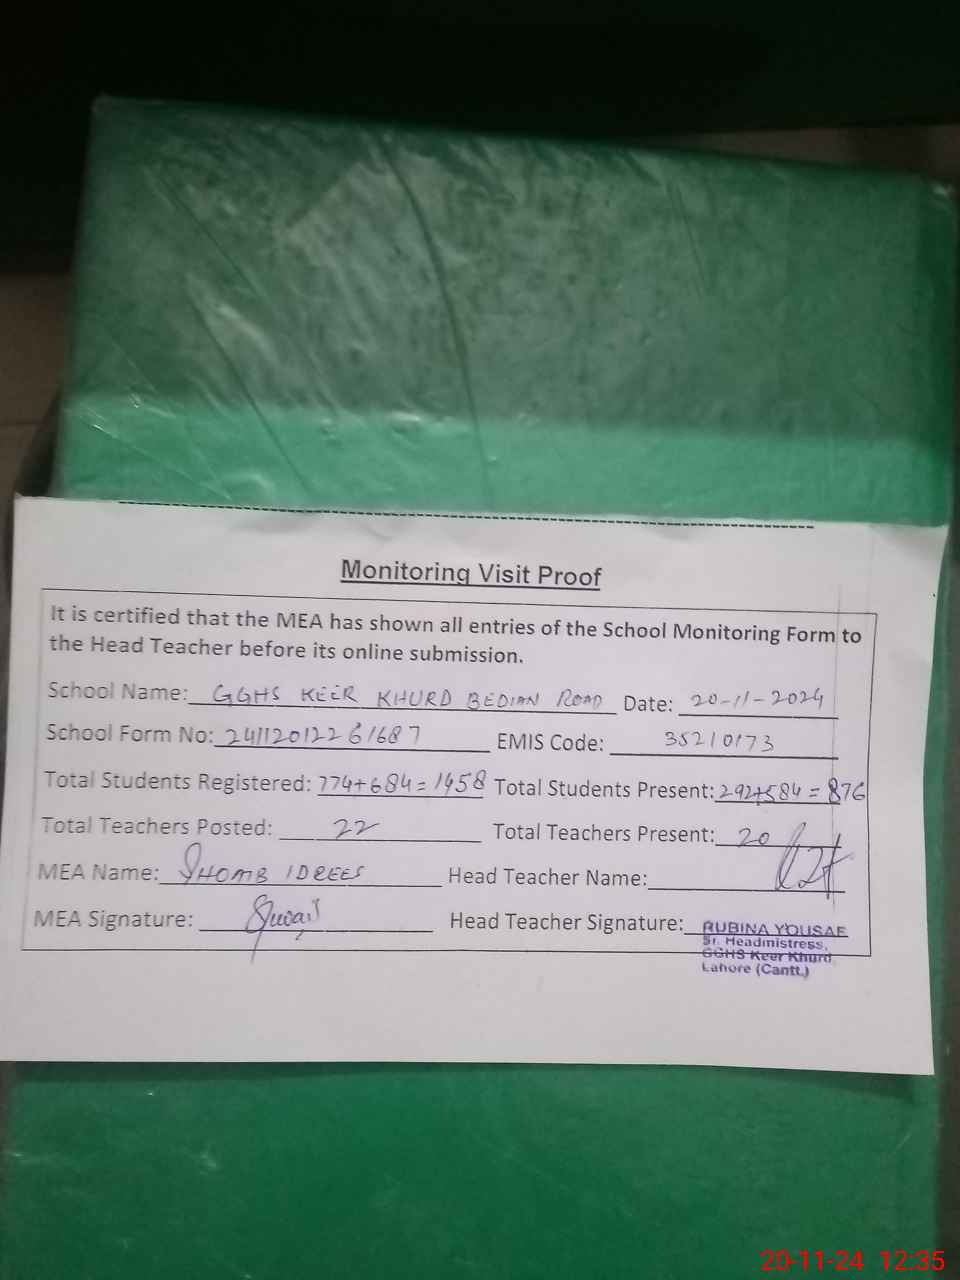 Monitoring Visit Proof
It is certified that the MEA has shown all entries of the School Monitoring Form to
the Head Teacher before its online submission.
School Name: GGHS KEER KHURD BEDIAN ROAD Date: 20-11-2024
School Form No: 24112012261687 EMIS Code: 35210173
Total Students Registered: 774+684=1458 Total Students Present: 292+584=876
Total Teachers Posted: 22 Total Teachers Present: 20
MEA Name: IDREES Head Teacher Name:
MEA Signature: Head Teacher Signature: RUBINA YOUSAF
Sr. Headmistress,
GGHS Keer Khurd
Lahore (Cantt.)
20-11-24 12:35